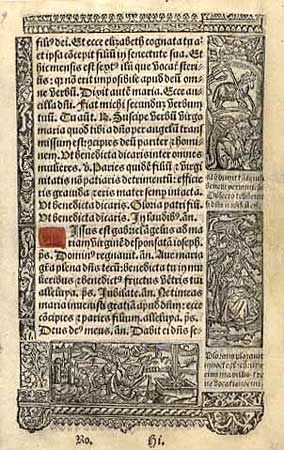 filius dei. Et ecce elizabeth cognata tua
et ipsa cōcepit filiū in senectute sua. Et
hic mensis est sextꝰ illi que vocat steri-
lis: qꝛ nō erit impossibile apud deū om
ne verbū. Dixit autē maria. Ecce an-
cilla dñi. Fiat michi secundum verbum
tuū. Tu aūt. R. Suscipe verbū virgo
maria quod tibi a dño per angelū trans
missum est: cōcipies deū pariter z homi-
nem. Ut benedicta dicaris inter omnes
mulieres. v. Paries quidē filiū z virgi
nitatis nō patieris detrimentū: efficie-
ris grauida z eris mater semp intacta.
Ut benedicta dicaris. Gloria patri fil.
Ut benedicta dicaris. In laudibꝰ. añ.
Missus est gabriel āgelus ad ma
riam virginē desponsatā ioseph.
ps. Dominꝰ regnauit. añ. Aue mari
gr̄a plena dñs tecū: benedicta tu in mu
lieribus z benedictꝰ fructus vētris tui
alleluya. ps. Iubilate. añ. Ne timeas
maria inuenisti gratiā apud dñm: ecce
cōcipies z paries filium. alleluya. ps.
Deus deꝰ meus. añ. Dabit ei dñs se-
Ro. Hi.